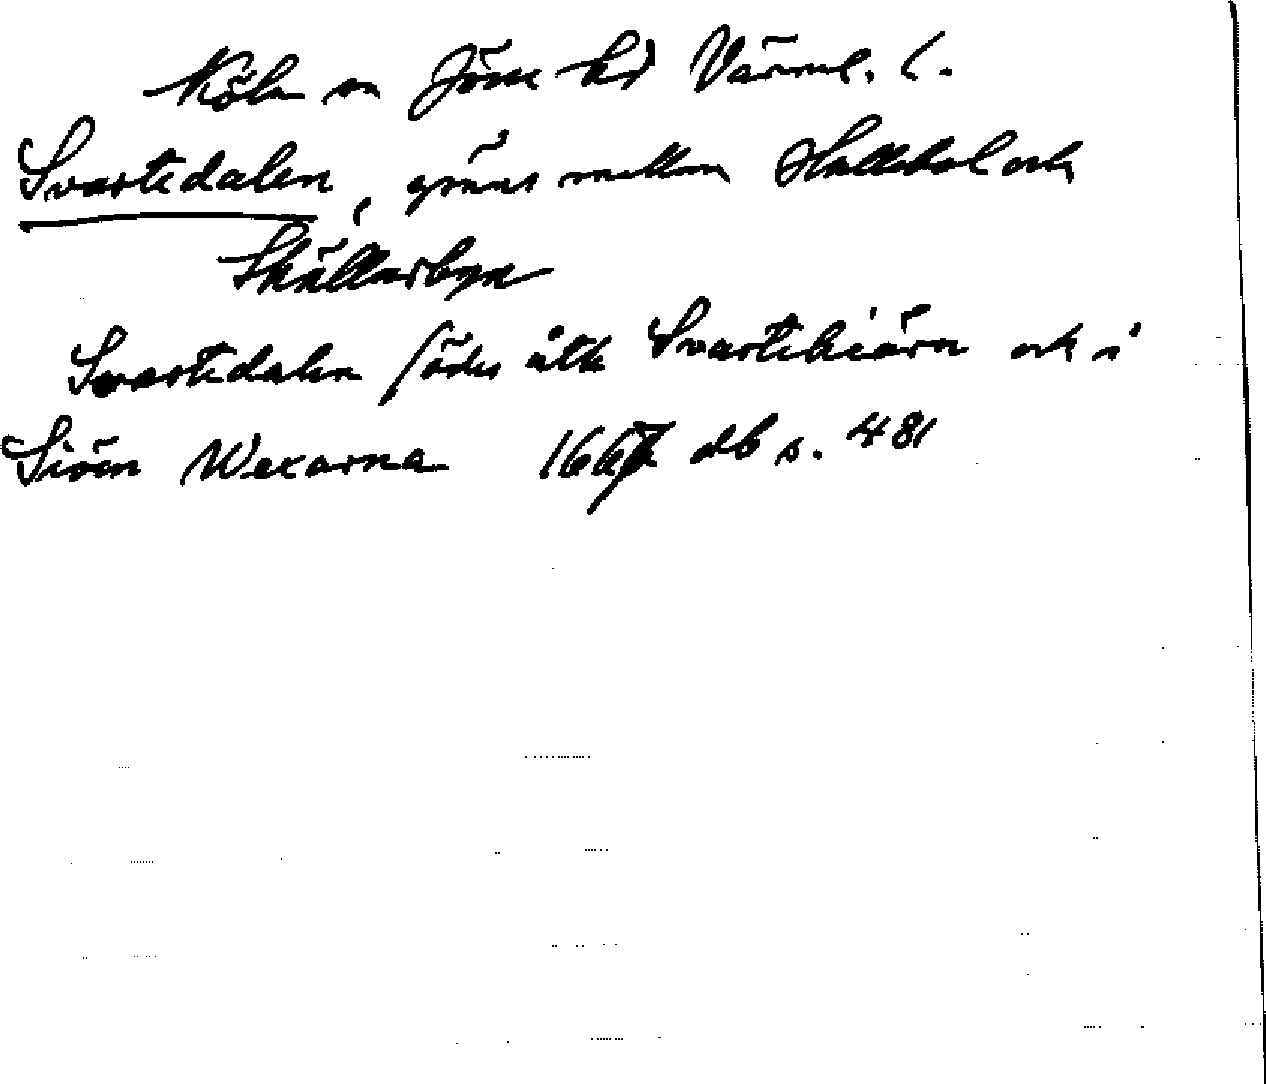 Köla sn Jösse hd Värml. l.
Svartedalen, gräns mellan Hallebol och
Skällarbyn
Svartedalen söder åth Svartekiärn och i
Siöen Wexarna 1667 db s. 481